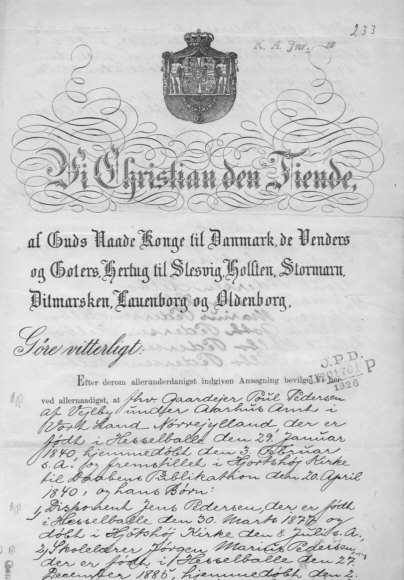 233
K. A. Jnr.
Vi Christian den Tiende,
af Guds Naade Konge til Danmark, de Venders
og Goters, Hertug til Slesvig, Holsten, Stormarn,
Ditmarsken, Lauenborg og Oldenborg,
Göre vitterligt:
J.P.D.
201701 P
1926
Efter derom allerunderdanigst indgiven Ansøgning bevilge Vi her-
ved allernaadigst, at fhv. Gaardejer Poul Pedersen
af Vejlby under Aarhus Amt i
Vort Land Nørrejylland, der er
født i Hesselballe den 29. Januar
1840, hjemmedøbt den 3. Februar
s. A. og fremstillet i Hjortshøj Kirke
til Daabens Publikation den 20. April
1840, og hans Børn:
1) Disponent Jens Pedersen, der er født
i Hesselballe den 30. Marts 1877 og
døbt i Hjortshøj Kirke den 8. Juli s. A.
2) Skolelærer Jørgen Marius Pedersen,
der er født i Hesselballe den 27.
December 1885, hjemmedøbt den 2.